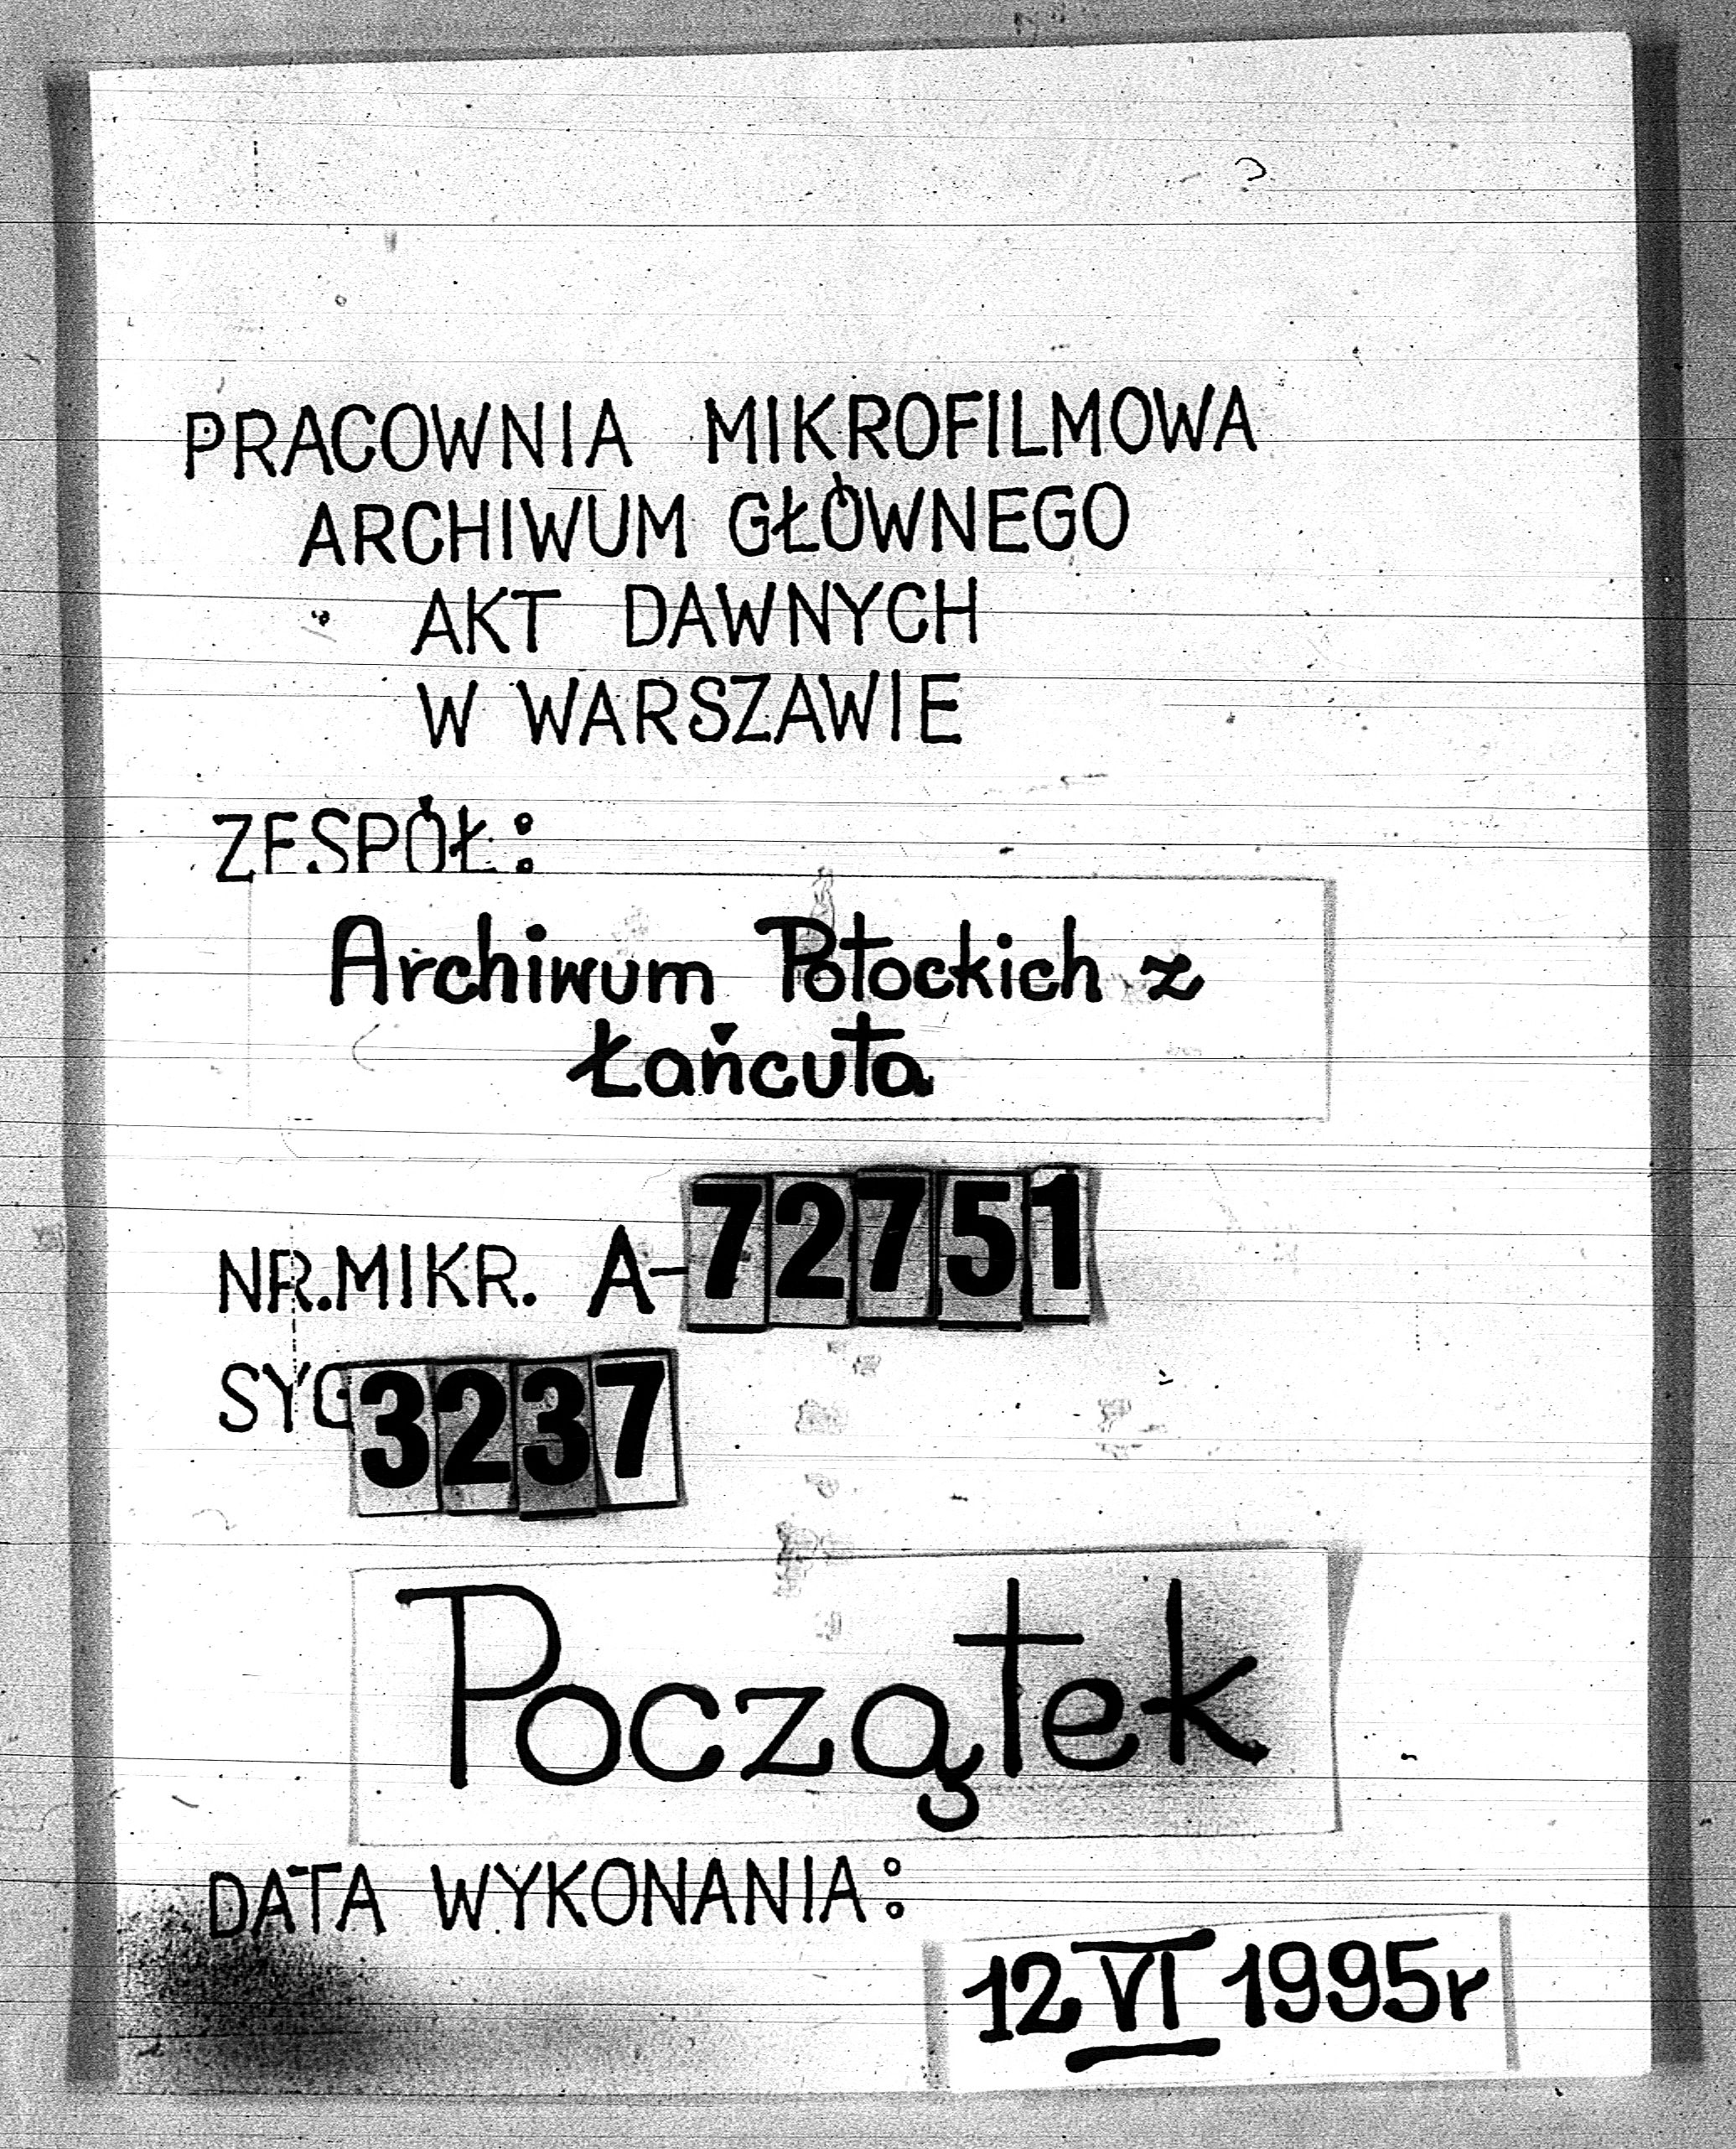 PRACOWNIA MIKROFILMOWA
ARCHIWUM GŁÓWNEGO
AKT DAWNYCH
W WARSZAWIE
ZESPÓŁ:
Archiwum Potockich z
Łańcuta
NR.MIKR. A-72751
SYG 3237
Początek
DATA WYKONANIA:
12 VI 1995r